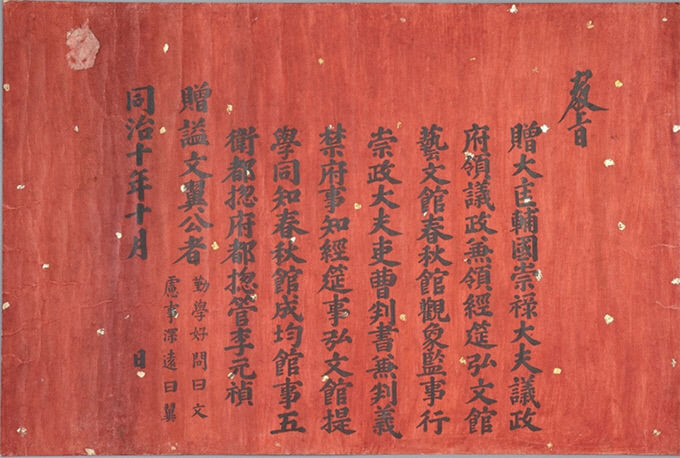 敎旨
贈大匡輔國崇祿大夫議政
府領議政兼領經筵弘文館
藝文館春秋館觀象監事行
崇政大夫吏曹判書兼判義
禁府事知經筵事弘文館提
學同知春秋館成均館事五
衛都摠府都摠管李元禎
贈諡文翼公者
勤學好問曰文
慮事深遠曰翼
同治十年十月 日